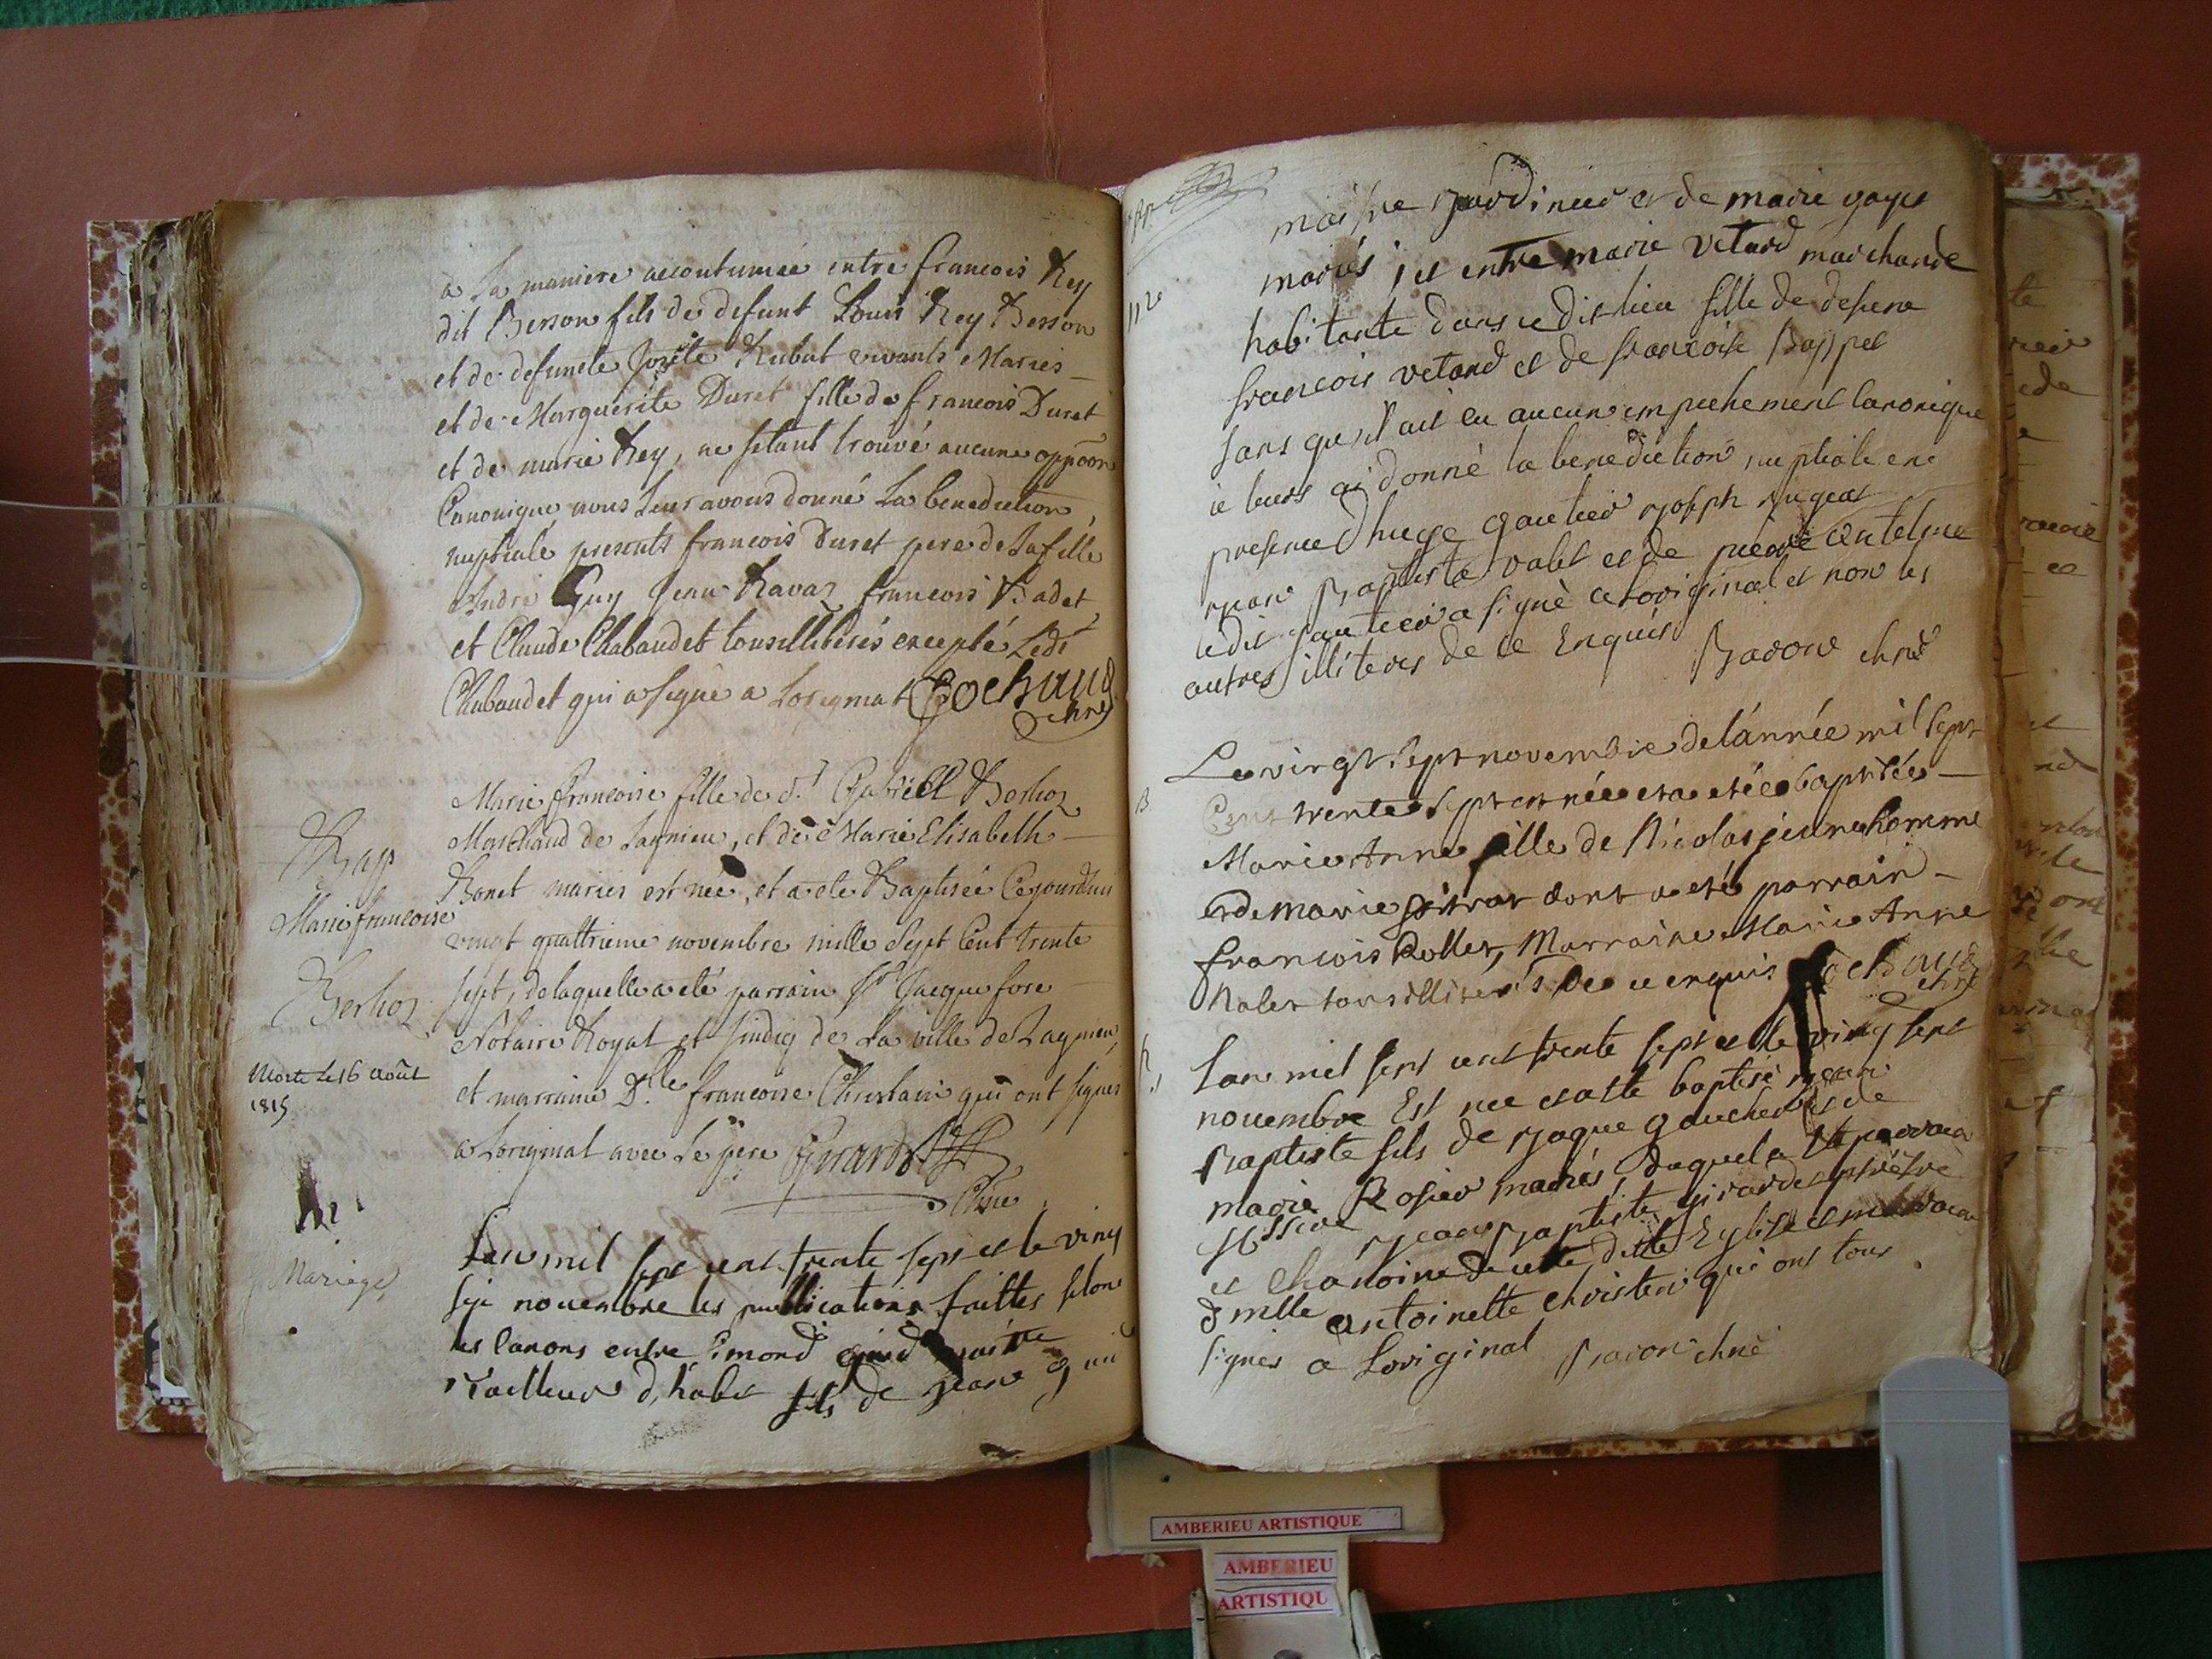 a La maniere accoutumée entre francois Rey
dit Berson fils de defunt Louis Rey Berson
et de defuncte Jozete Rubat vivants Mariés
et de Marguerite Duret fille de francois Duret
et de marie Rey, ne setant trouvé aucune oppoōn
Canonique nous Leur avons donné La benediction
nuptiale presents francois Duret pere de La fille
Andre Guy Jean Ravaz francois Badet
et Claude Chabaudet tous illiterés excepté Ledt
Chabaudet qui a signé a Loriginal Cochaud
chne
Marie francoise fille de Sr. Gabriell Berlioz
Marchand de Lagnieu, et de Marie Elisabeth
Bonet mariés est née, et a ete Baptisée Cejourdhui
vingt quattrieme novembre mille Sept Cent trente
sept, de laquelle a eté parrain Sr Jacque fore
Notaire Royal et sindiq de La ville de Lagnieu,
et marraine D.lle francoise Christain qui ont signés
a Loriginal avec Le pere Girardet
Chne
Bap
Marie francoise
Berlioz
Morte le 16 août
1815
Lan mil sept cent trente sept et le ving
sept nouembre les publications faittes selon
les Canons entre Simond maitre
tailleur d'habit fils de jean
Mariage
112
maistre jardinier et de marie
mariés, et entre marie vetard marchande
habitante dans cedit lieu fille de defunt
francois vetard et de francoise
sans qu'il ait eu aucun empechement Canonique
ie leurs ai donné la benediction nuptiale en
presence d'huge gautier joseph
jean Baptiste valet et de pierre antelme
ledit gautier a signé a loriginal et non les
autres illiterés de ce Enquis Baron chne
B
Le vingt sept novembre de l'année mil Sept
Cent trente Sept est née et a etée baptisée
Marie Anne fille de Nicolas jeune homme
et de marie pitrat dont a eté parrain
francois Rollet, Marraine Marie Anne
Nalet tous illiterés de ce enquis Cochaud
chne
Lan mil sept cent trente sept et le ving sept
nouembre Est nee et a ette baptisé jean
Baptiste fils de jaque gaucher et de
marie Rosier mariés, duquel a Eté parrain
Messire jean Baptiste girardet prétre
et Chanoine de cette ditte Eglise et marraine
dmlle antoinette christin qui ont tous
signés a Loriginal Baron chne
AMBERIEU ARTISTIQUE
AMBERIEU
ARTISTIQU